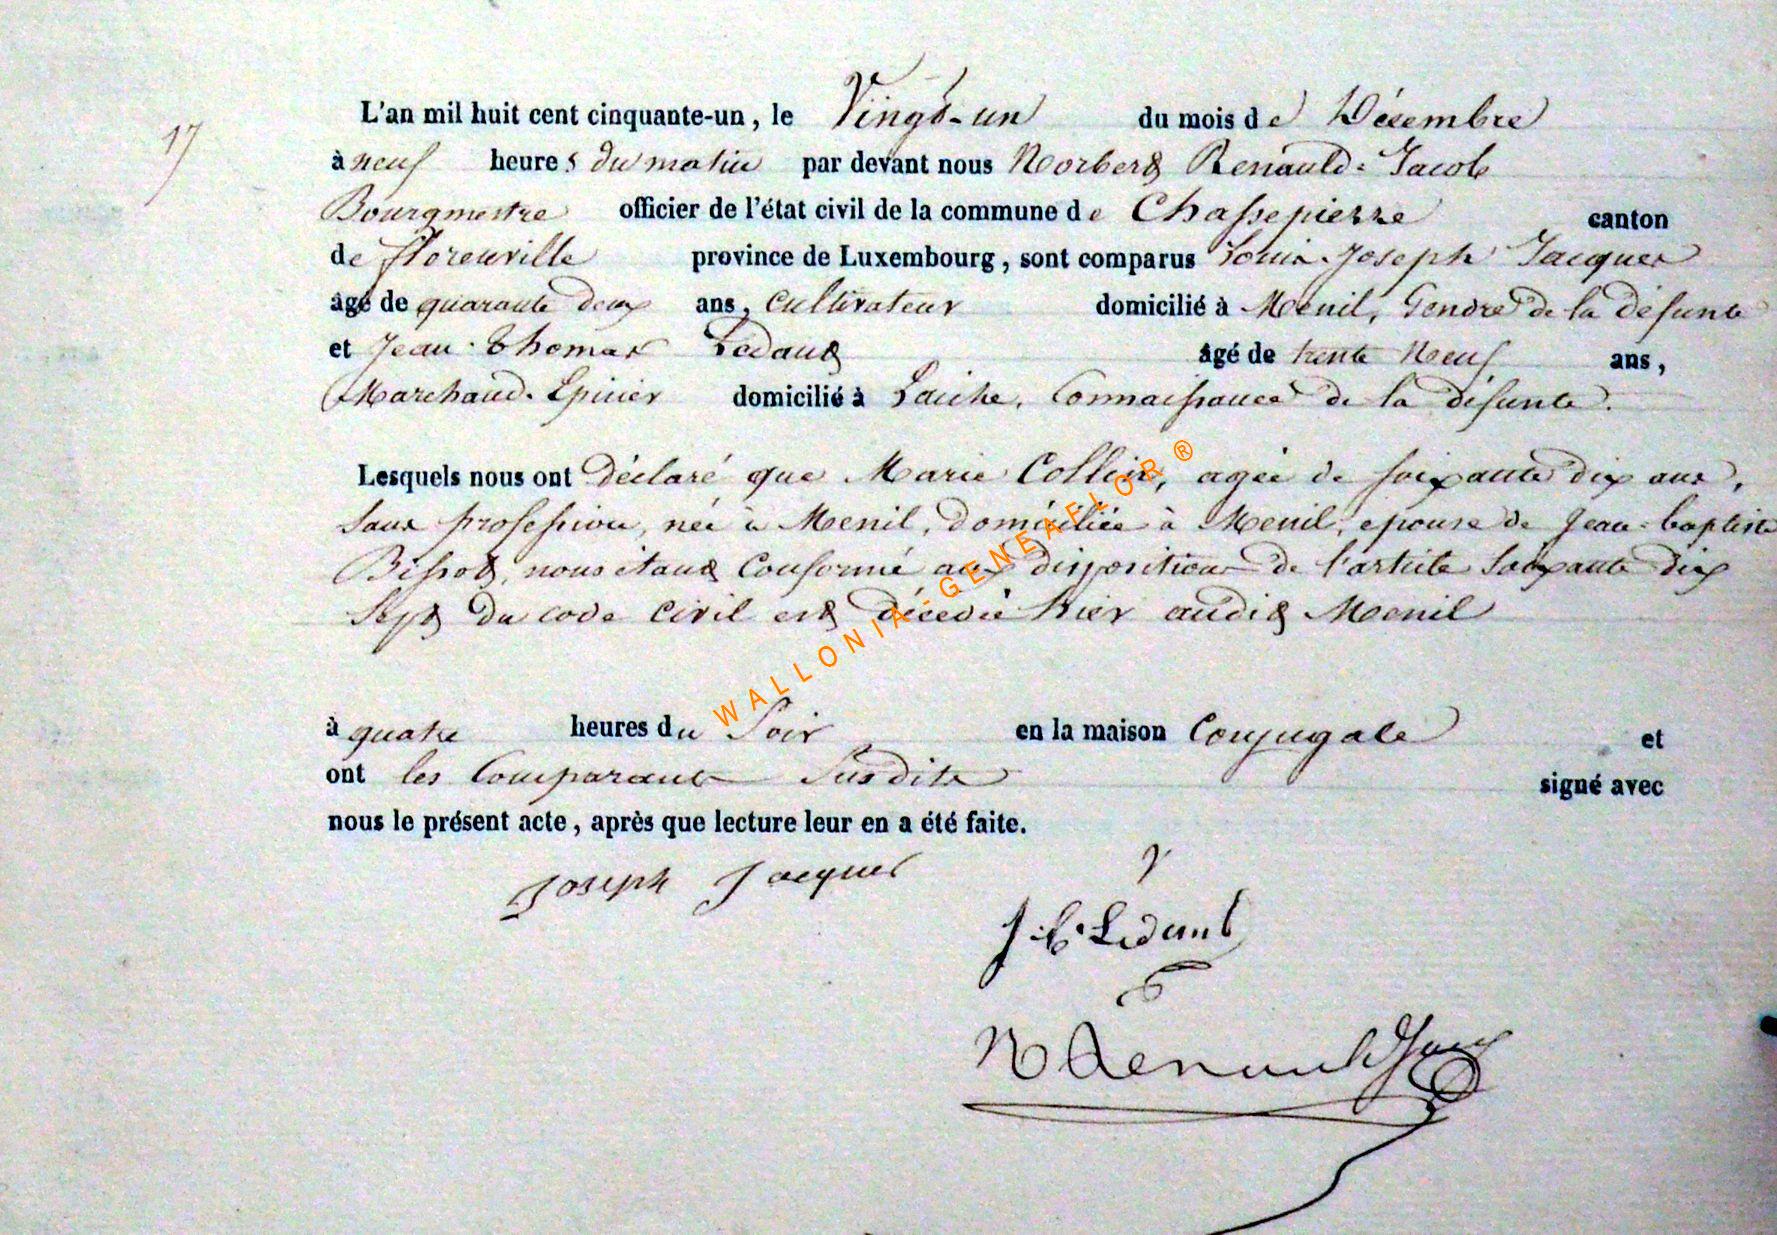 17
L'an mil huit cent cinquante-un, le Vingt-un du mois de Décembre
à neuf heures du matin par devant nous Norbert Renauld-Jacob
Bourgmestre officier de l'état civil de la commune de Chassepierre canton
de florenville province de Luxembourg, sont comparus Louis-Joseph Jacques
âgé de quarante deux ans, Cultivateur domicilié à Menil, Gendre de la défunte
et Jean-Thomas Ledant âgé de trente Neuf ans,
Marchand-Epicier domicilié à Laiche, Connaissance de la défunte.
Lesquels nous ont Déclaré que Marie Collin, agée de soixante dix ans,
sans profession, née à Menil, Domiciliée à Menil, epouse de Jean-baptiste
Bissot, nous étant Conformé aux dispositions de l'article Soixante dix
Sept Du code Civil est décedée hier audit Menil
à quatre heures du Soir en la maison Conjugale et
ont les Comparants Susdits signé avec
nous le présent acte, après que lecture leur en a été faite.
Joseph Jacques
J. t. Ledant
N Renauld Jacob
WALLONIA-GENEAFLOR ®